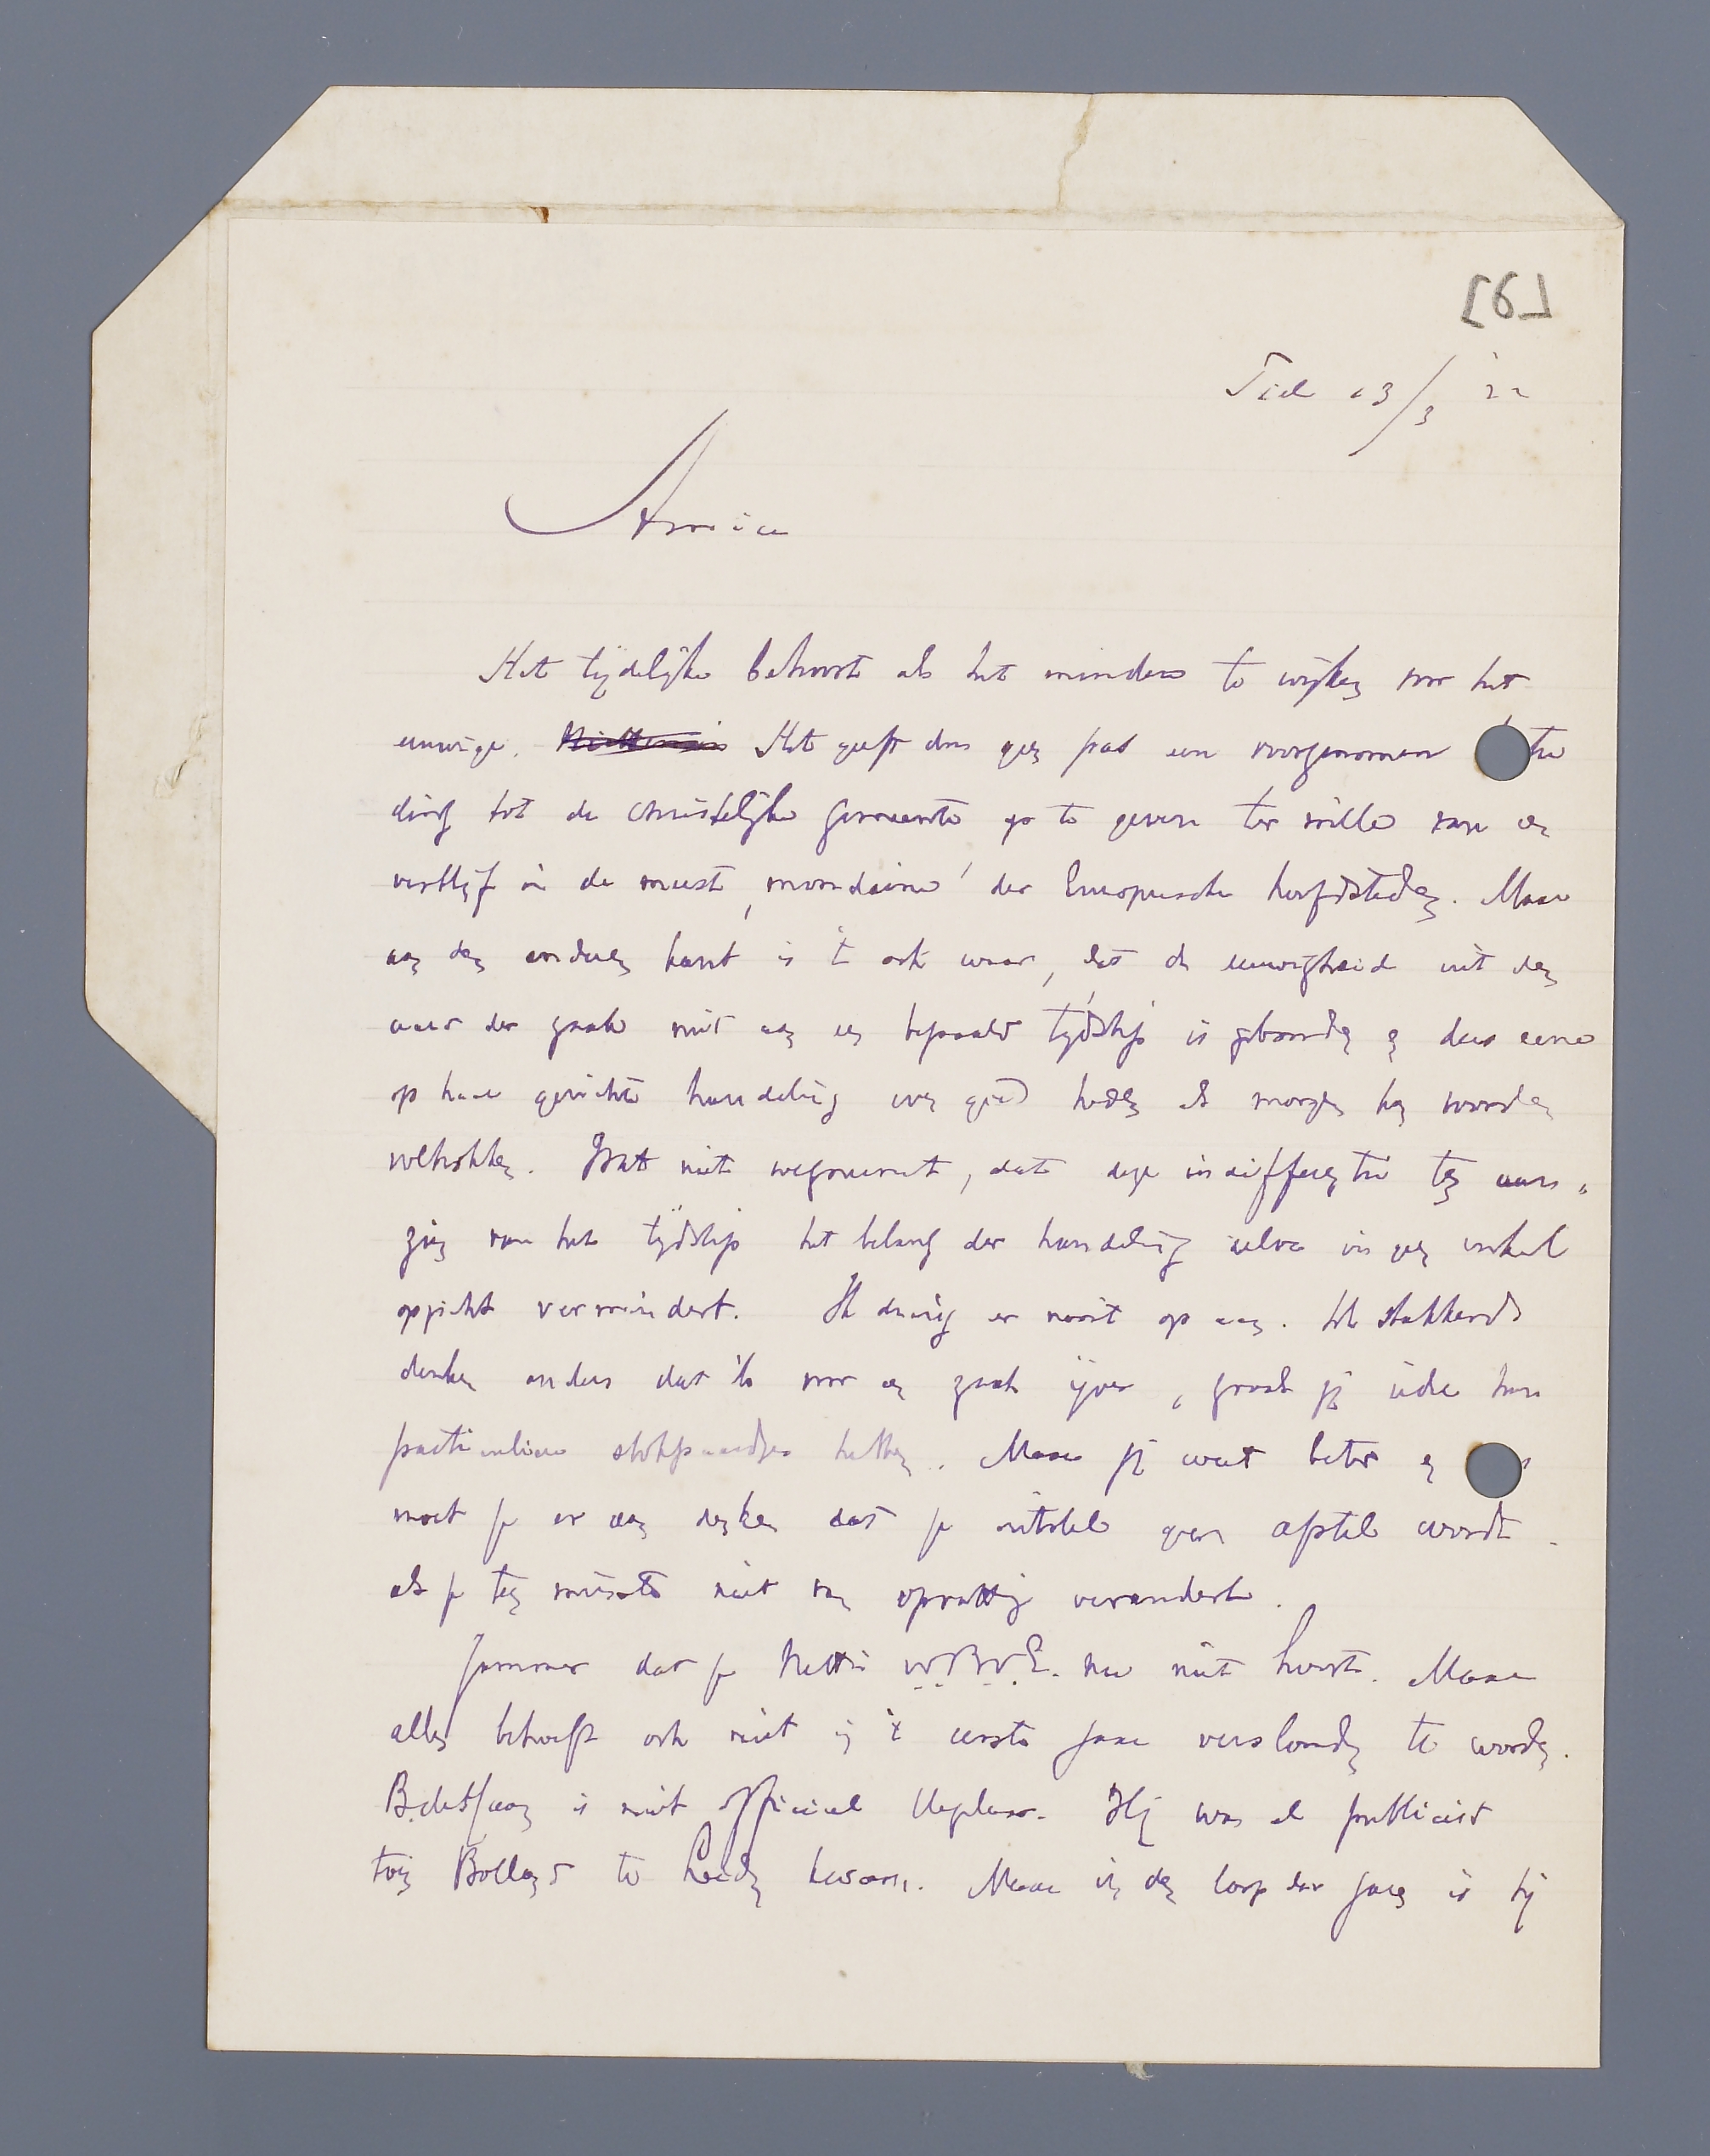 [6]
Tiel 23/3 22
Amice
Het tijdelijke behoort als het mindere te wijken voor het
eeuwige. Het geeft dus geen pas een voorgenomen toetre
ding tot de christelijke gemeente op te geven ter wille van een
verblijf in de meest ‚mondaine' der Europeesche hoofdsteden. Maar
aan den anderen kant is 't ook waar, dat de eeuwigheid uit den
aard der zaak niet aan een bepaald tijdstip is gebonden en dus eene
op haar gerichte handeling even goed heden als morgen kan worden
voltrokken. Dat niet wegneemt, dat deze indifferentie ten aan„
zien van het tijdstip het belang der handeling zelve in geen enkel
opzicht vermindert. Ik dring er nooit op aan. De stakkerds
denken anders dat ik voor een zaak ijver, zooals zij ieder hun
particuliere stokpaardjes hebben. Maar jij weet beter en
moet je er aan denken dat je uitstel geen afstel wordt
als je ten minste niet van opvatting verandert.
Jammer dat je Nettie v.B.v.E. nu niet hoort. Maar
alles behoeft ook niet in 't eerste jaar verslonden te worden.
is niet officieel Hegelaar. Hij was al publicist
toen Bolland te Leiden kwam. Maar in den loop der jaren is hij